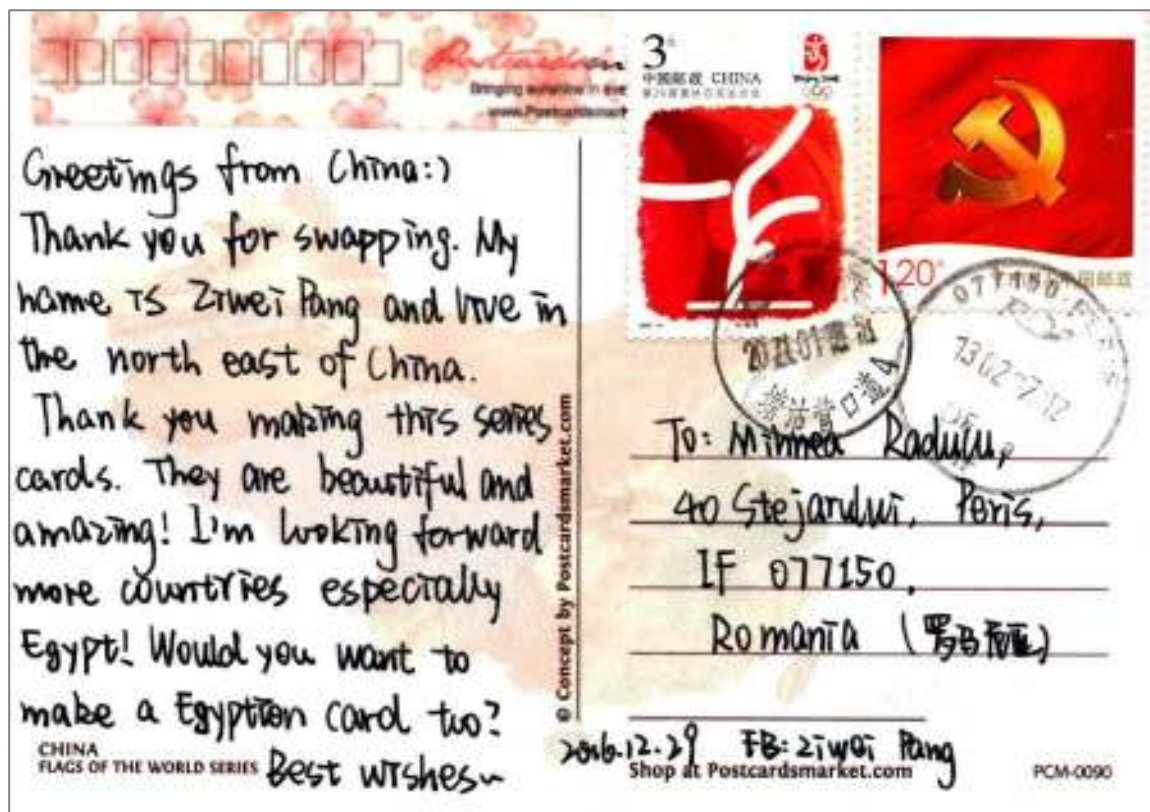 Postcards
Bringing sunshine in eve
www.Postcardsmark
3元
中国邮政 CHINA
第29届奥林匹克运动会
Beijing 2008
1.20元
中国邮政
Greetings from China:)
Thank you for swapping. My
name is Ziwei Pang and live in
the north east of China.
Thank you making this series
cards. They are beautiful and
amazing! I'm looking forward
more countries especially
Egypt! Would you want to
make a Egyption card too?
Best wishes~
CHINA
FLAGS OF THE WORLD SERIES
© Concept by Postcardsmarket.com
塘沽营口道4
077150
To: Mihnea Raducu,
40 Stejarului, Peris,
IF 077150,
Romania (罗马尼亚)
2016.12.29 FB: Ziwei Pang
Shop at Postcardsmarket.com
PCM-0090